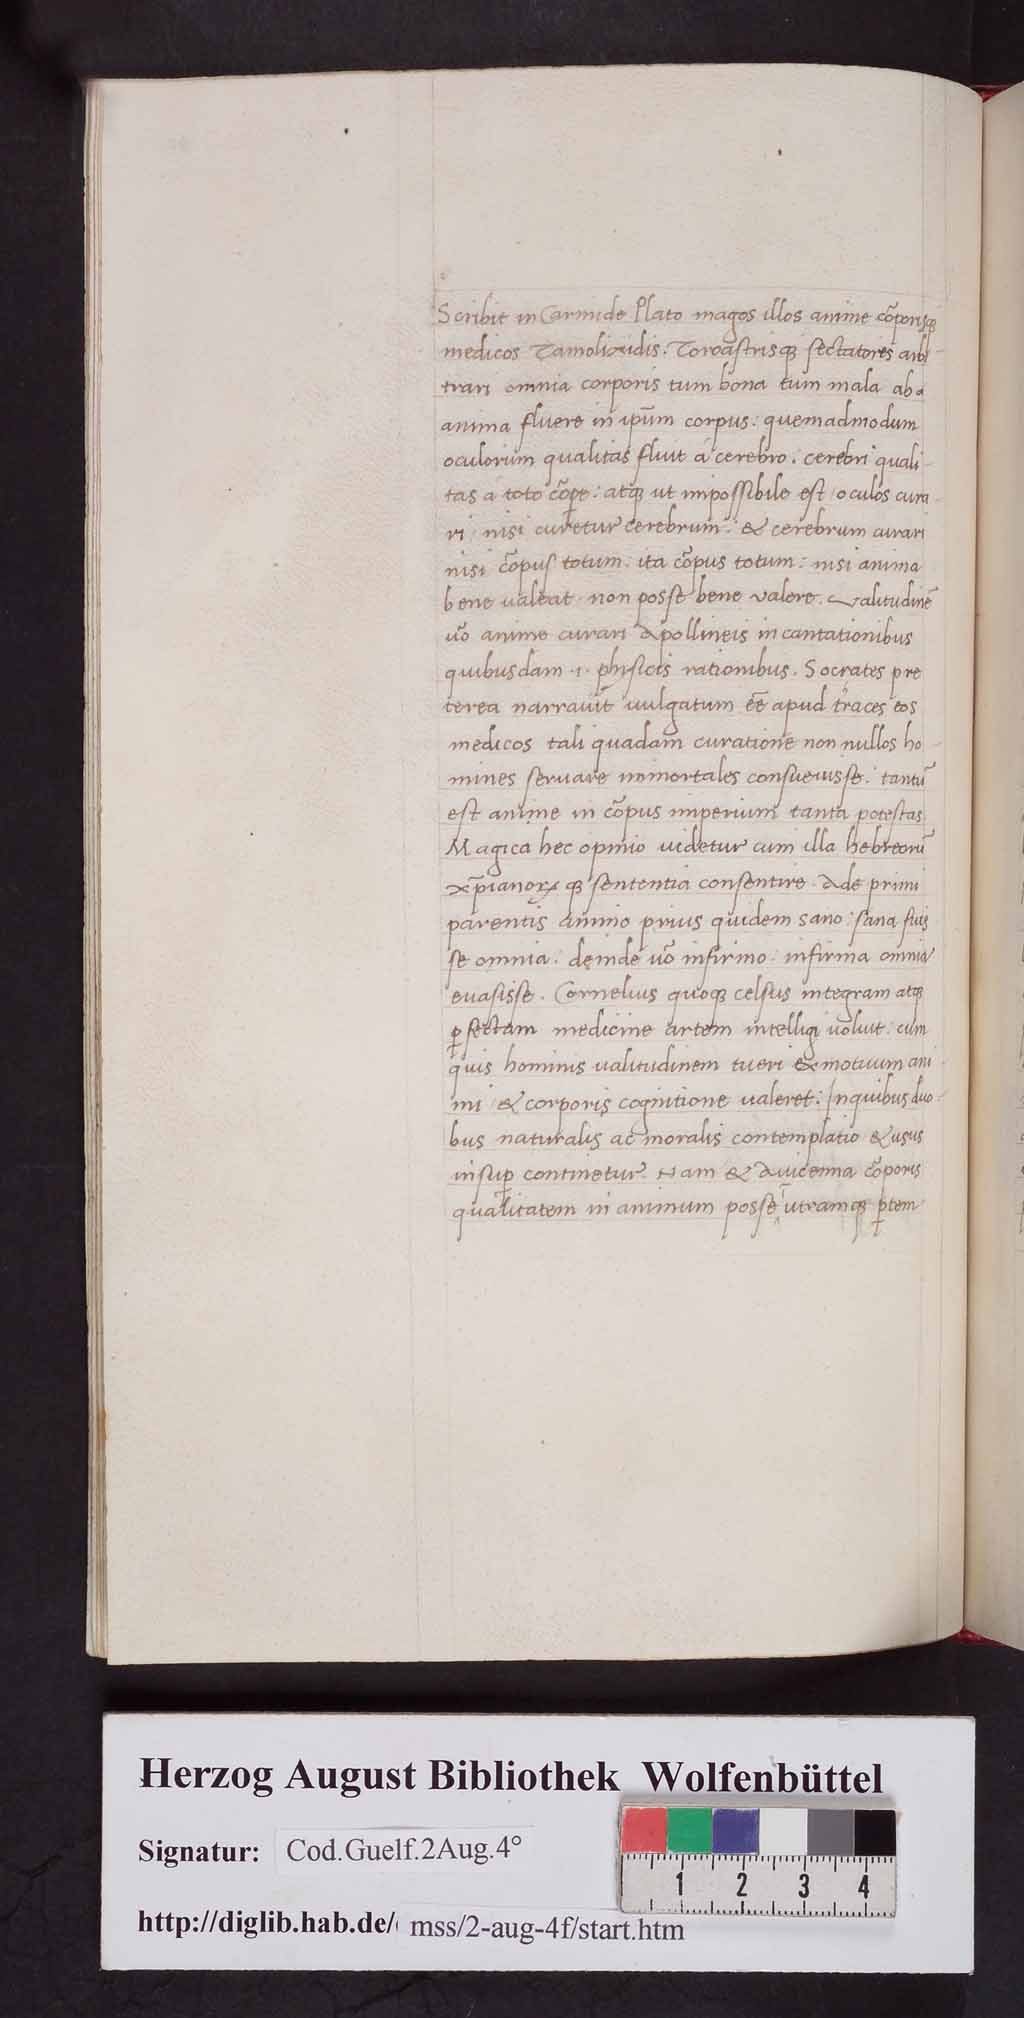 Scribit in Carmide Plato magos illos anime cōporisq́
medicos Zamolixidis. Zoroastrisq́ sectatores arbi-
trari omnia corporis tum bona tum mala ab
anima fluere in ip̄um corpus: quemadmodum
oculorum qualitas fluit á cerebro. cerebri quali-
tas a toto cōpe: atq́ ut impossibile est / oculos cura-
ri / nisi curetur cerebrum: & cerebrum curari
nisi cōpus totum: ita cōpus totum: nisi anima
bene ualeat non posse bene valere. Valitudinē
uō anime curari Apollineis incantationibus
quibusdam .i. phisicis rationibus. Socrates pre
terea narrauit uulgatum eē apud traces eos
medicos tali quadam curatione non nullos ho-
mines seruare immortales consueuisse. tantū
est anime in cōpus imperium tanta potestas
Magica hec opinio uidetur cum illa hebreorū
xp̄ianorꝝ q́ sententia consentire. Ade primi
parentis animo prius quidem sano: sana fuis
se omnia: deinde uō infirmo: infirma omnia
euasisse. Cornelius quoq́ celsus integram atq́
ꝑfectam medicine artem intelligi uoluit: cum
quis hominis ualitudinem tueri ex motuum ani-
mi / & corporis cognitione ualeret: Inquibus duo-
bus naturalis ac moralis contemplatio & usus
insuꝑ continetur. Nam & Auicenna cōporis
qualitatem in animum posse ī utramq́ ꝑtem
Herzog August Bibliothek Wolfenbüttel
Signatur: Cod.Guelf.2Aug.4°
http://diglib.hab.de/ mss/2-aug-4f/start.htm
1 2 3 4